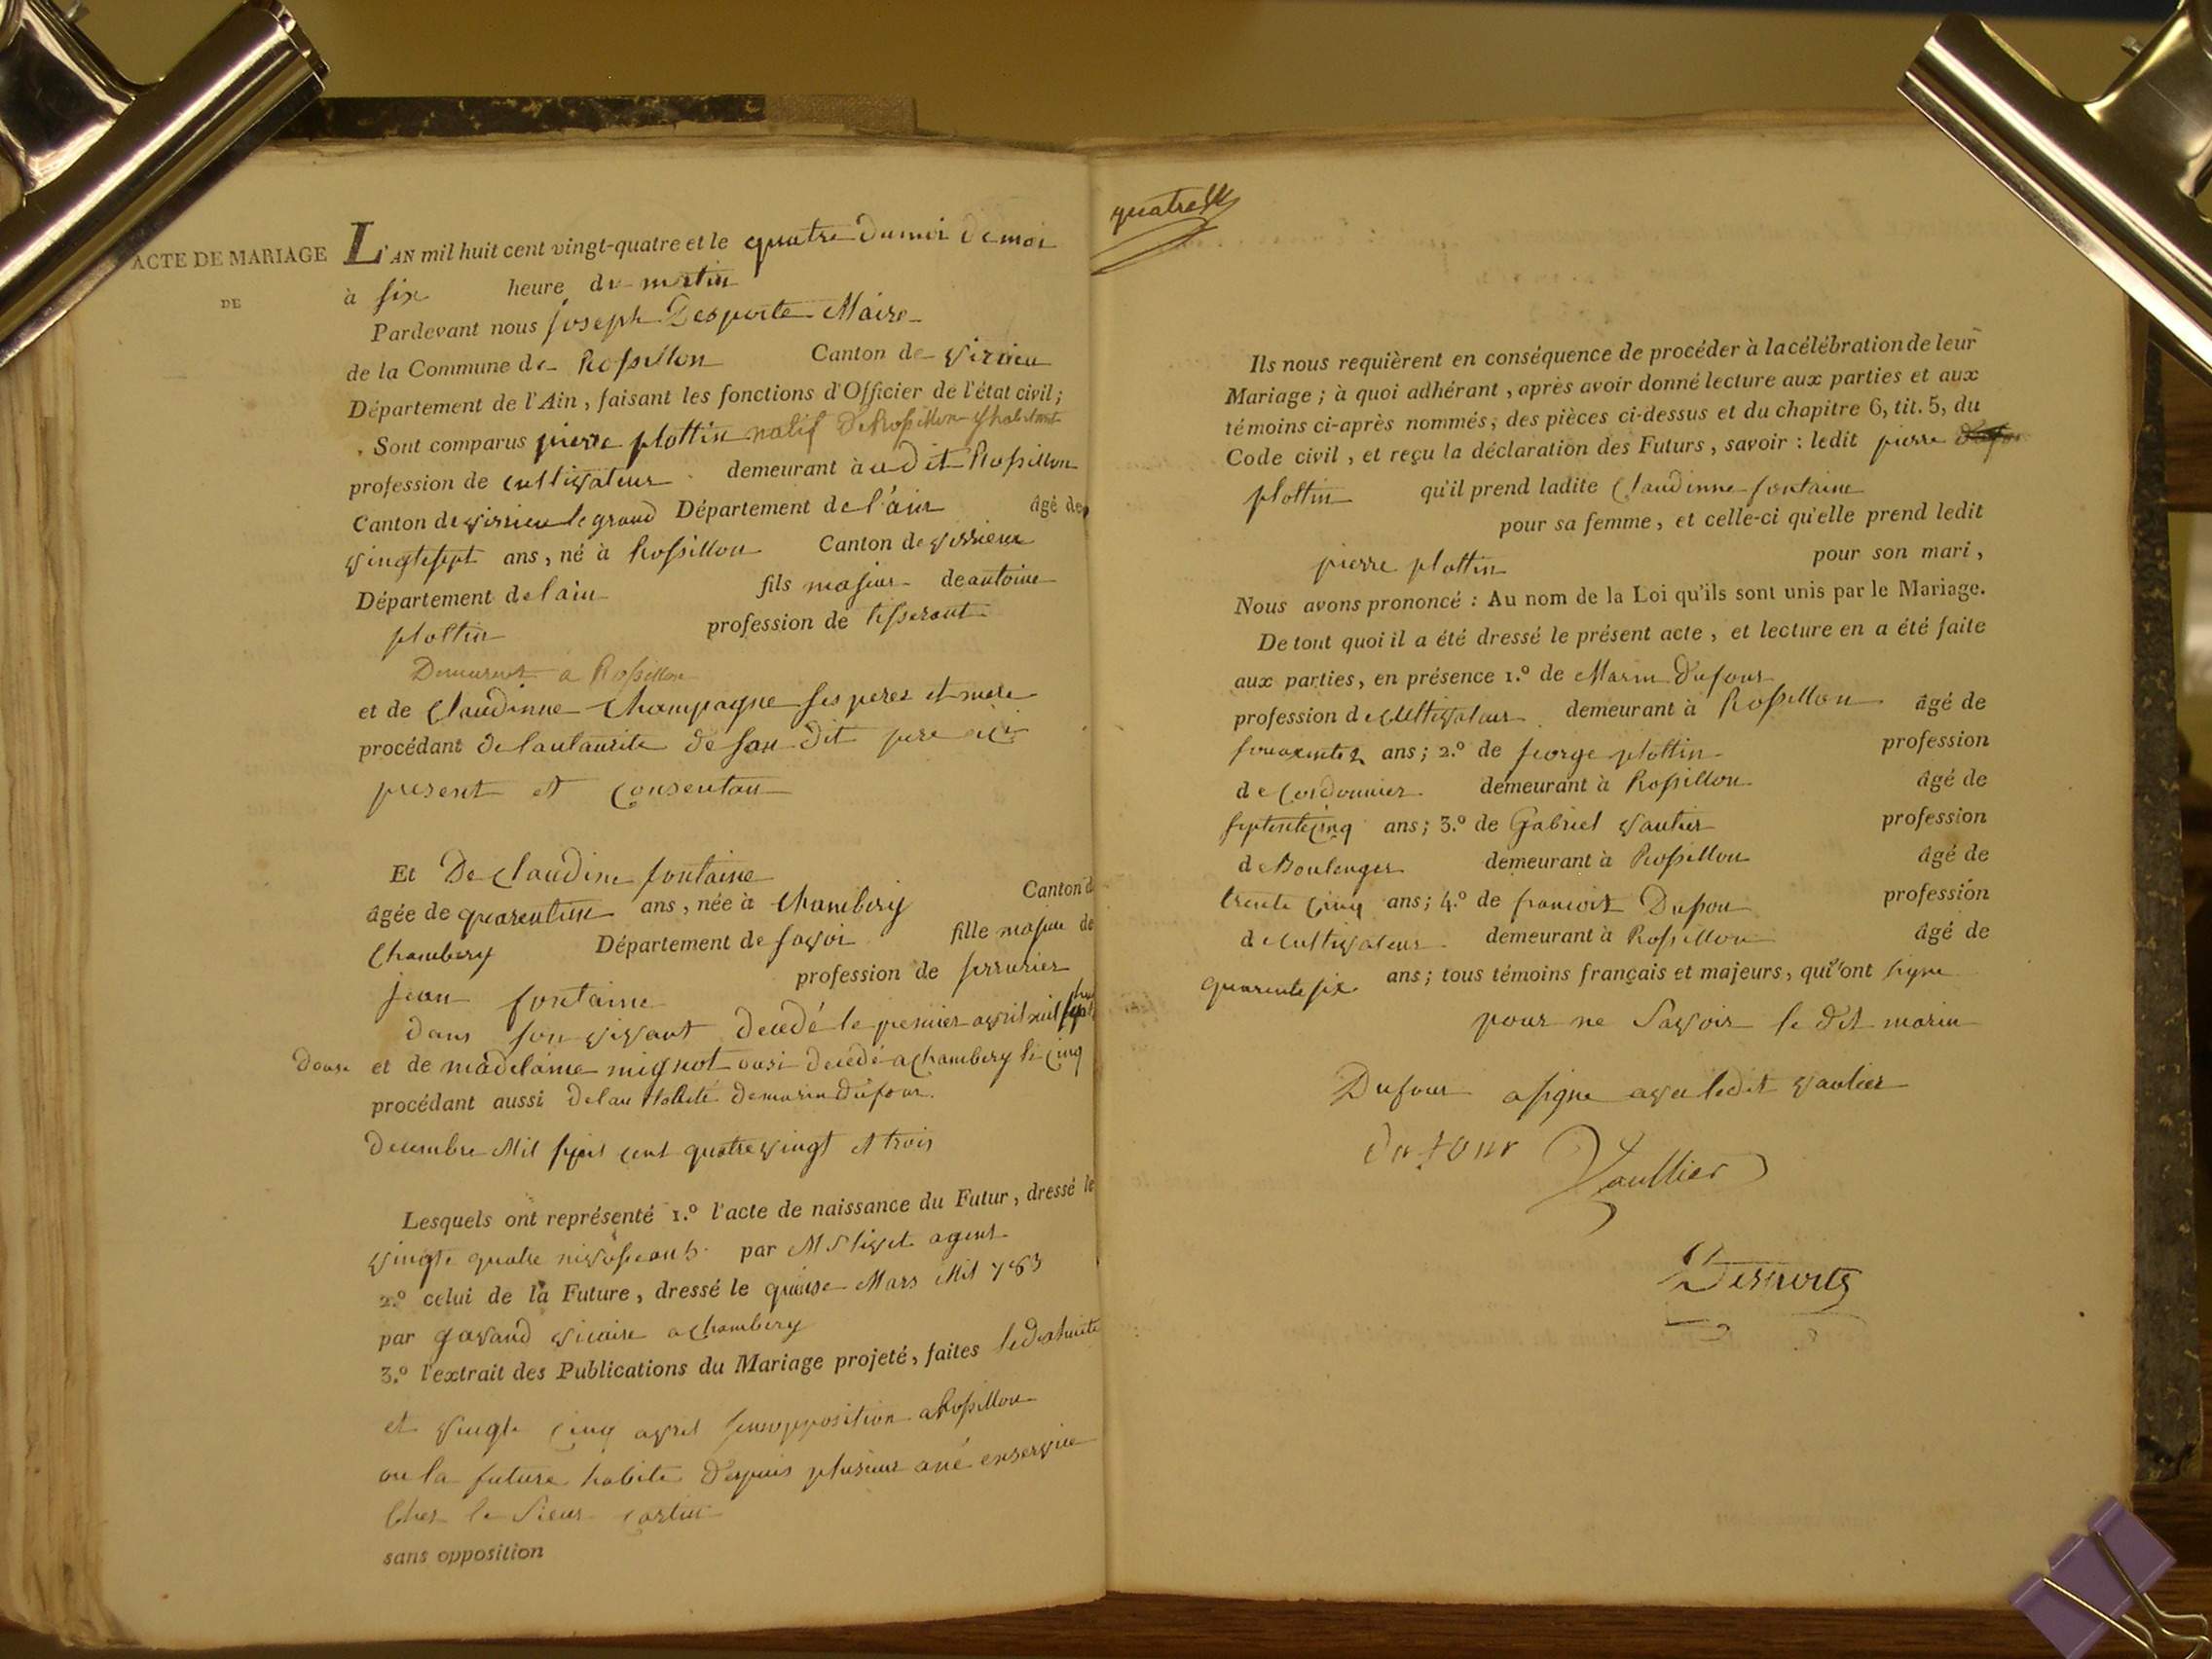 ACTE DE MARIAGE
DE
L'AN mil huit cent vingt-quatre et le quatre du moi de mai
à six heure du matin
Pardevant nous joseph Desporte Maire
de la Commune de Rossillon Canton de virieu
Département de l'Ain, faisant les fonctions d'Officier de l'état civil;
Sont comparus pierre plottin natif de Rossillon y habitant
profession de cultivateur demeurant à udit Rossillon
Canton de virrieu le grand Département de l'ain âgé de
vingtesept ans, né à Rossillon Canton de virrieux
Département de lain fils majeur de antoine
plottin profession de tisserant
Demeurant a Rossillon
et de Claudinne Champagne ses peres et mere
procédant de lautaurite de son dit pere ici
present et consentan
Et De Claudine fontaine
âgée de ans, née à Chambery Canton d
Chambery Département de savoir fille majeure de
jean fontaine profession de serrurier
dans son vivant decedé le premier avril mil
douse et de madelaine mignot ausi decedé a Chambery le cinq
procédant aussi de marin Dufour.
decembre Mil sept cent quatrevingt et trois
Lesquels ont représenté 1.º l'acte de naissance du Futur, dressé le
vingte quatre nivosse an 5 par M agent
2.º celui de la Future, dressé le quinse Mars Mil 783
par gavand vicaire a Chambery
3.º l'extrait des Publications du Mariage projeté, faites le dixhuite
et vingte cinq avril sensopposition a Rossillon
ou la future habite depuis plusieur ané enservice
Cher le Sieur
sans opposition
quatre
Ils nous requièrent en conséquence de procéder à la célébration de leur
Mariage; à quoi adhérant, après avoir donné lecture aux parties et aux
témoins ci-après nommés, des pièces ci-dessus et du chapitre 6, tit. 5, du
Code civil, et reçu la déclaration des Futurs, savoir : ledit pierre
plottin qu'il prend ladite Claudinne fontaine
pour sa femme, et celle-ci qu'elle prend ledit
pierre plottin pour son mari,
Nous avons prononcé : Au nom de la Loi qu'ils sont unis par le Mariage.
De tout quoi il a été dressé le présent acte, et lecture en a été faite
aux parties, en présence 1.º de Marin Dufour
profession de cultivateur demeurant à Rossillon âgé de
ans; 2.º de jeorge plottin profession
de Cordonnier demeurant à Rossillon âgé de
ans; 3.º de Gabriel vautier profession
de Boulenger demeurant à Rossillon âgé de
trente cinq ans; 4.º de francoit Dufour profession
de cultivateur demeurant à Rossillon âgé de
quarente six ans; tous témoins français et majeurs, qui n'ont signe
pour ne Savoir le dit marin
Dufour a signe avec ledit vautier
dufour Vaullier
Desporte